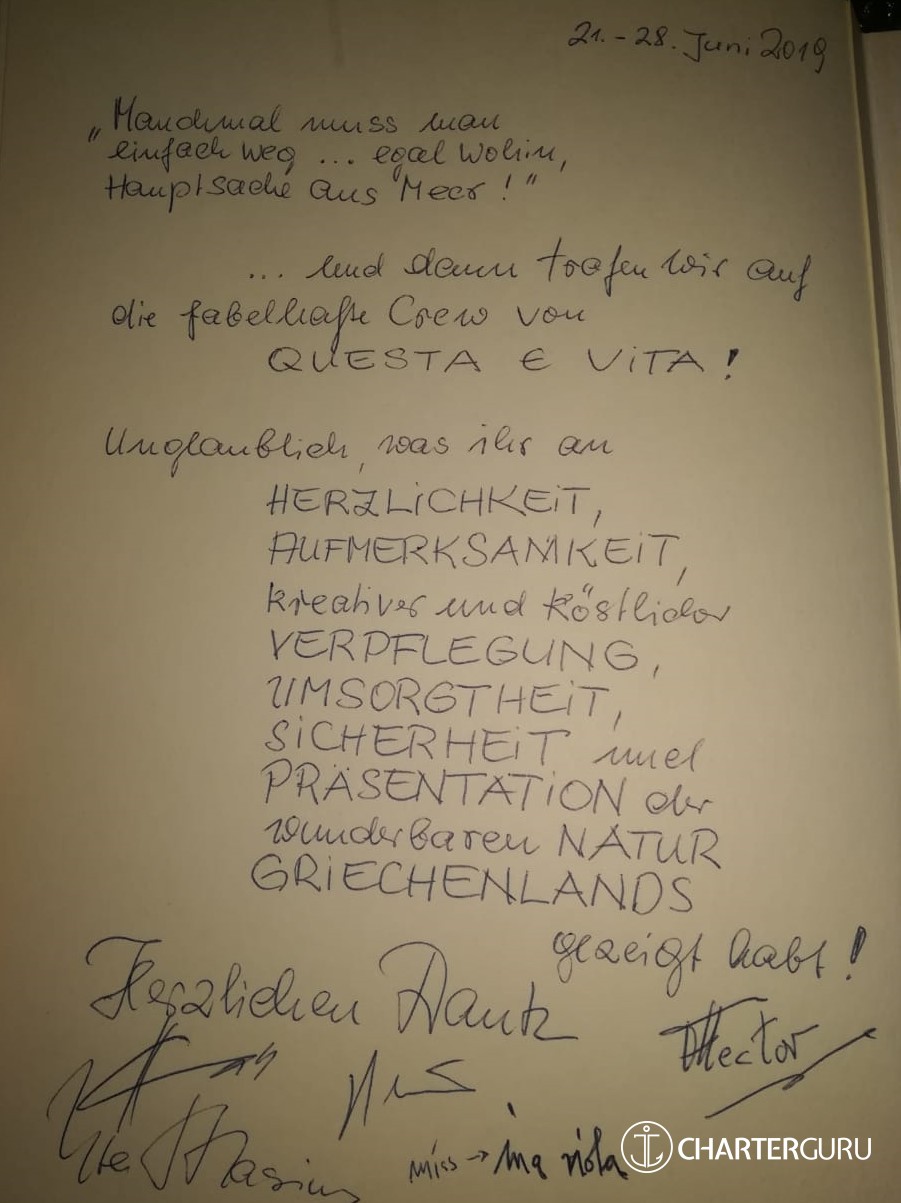 21. - 28. Juni 2019
„Manchmal muss man
einfach weg ... egal wohin,
Hauptsache ans Meer!"
... und dann trafen wir auf
die fabelhafte Crew von
QUESTA E VITA!
Unglaublich, was ihr an
HERZLICHKEIT,
AUFMERKSAMKEIT,
kreativer und köstlicher
VERPFLEGUNG,
UMSORGTHEIT,
SICHERHEIT und
PRÄSENTATION der
wunderbaren NATUR
GRIECHENLANDS
gezeigt habt!
Herzlichen Dank
Hector
miss →
CHARTERGURU